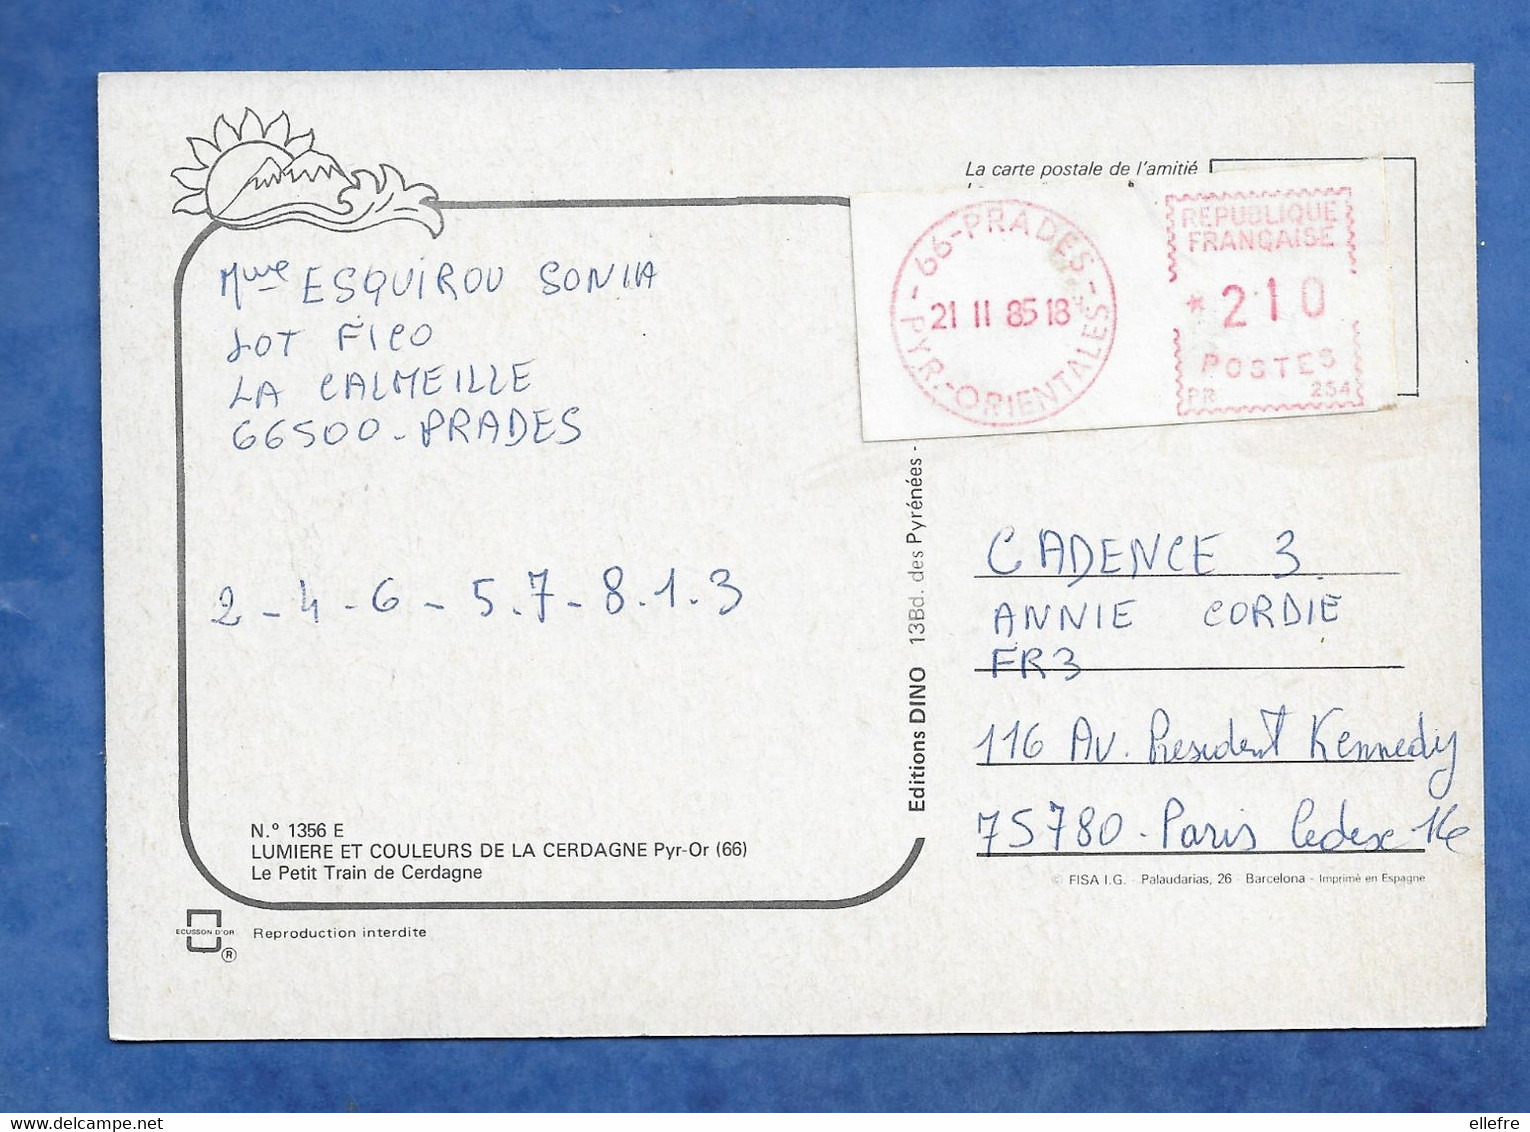 La carte postale de l'amitié
66-PRADES-
PYR.-ORIENTALES-
21 II 85 18
REPUBLIQUE
FRANÇAISE
*210
POSTES
PR 254
Mme ESQUIROU SONIA
LOT FICO
LA CALMEILLE
66500 - PRADES
2 - 4 - 6 - 5.7 - 8.1.3
Editions DINO 13Bd. des Pyrénées -
CADENCE 3
ANNIE CORDIE
FR3
116 Av. President Kennedy
75780 - Paris Cedex 16
N.º 1356 E
LUMIERE ET COULEURS DE LA CERDAGNE Pyr-Or (66)
Le Petit Train de Cerdagne
© FISA I.G. - Palaudarias, 26 - Barcelona - Imprimé en Espagne
ECUSSON D'OR
®
Reproduction interdite
ellefre